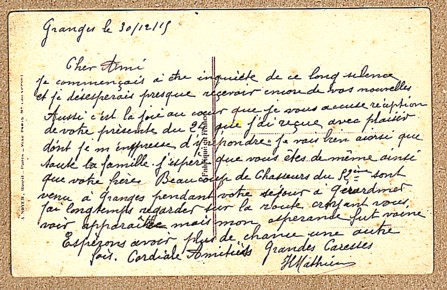 Granges le 30/12/15
Cher Ami
Je commençais a être inquiète de ce long silence
et je désésperais presque recevoir encore de vos nouvelles
Aussi c'est la joie au cœur que je vous accuse réception
de votre présente du 22 que j'ai reçue avec plaisir
dont je m'impresse d'y repondre je vais bien ainsi que
toute la famille j'espère que vous êtes de même ainsi
que votre frère. Beaucoup de Chasseurs du sont
venu a Granges pendant votre sejour a Gerardmer
J'ai longtemps regarder sur la route croyant vous
voir apparaître mais mon esperance fut vaine.
Espérons avoir plus de chance une autre
fois. Cordiale Amitiés Grandes Caresses
H Mathieu